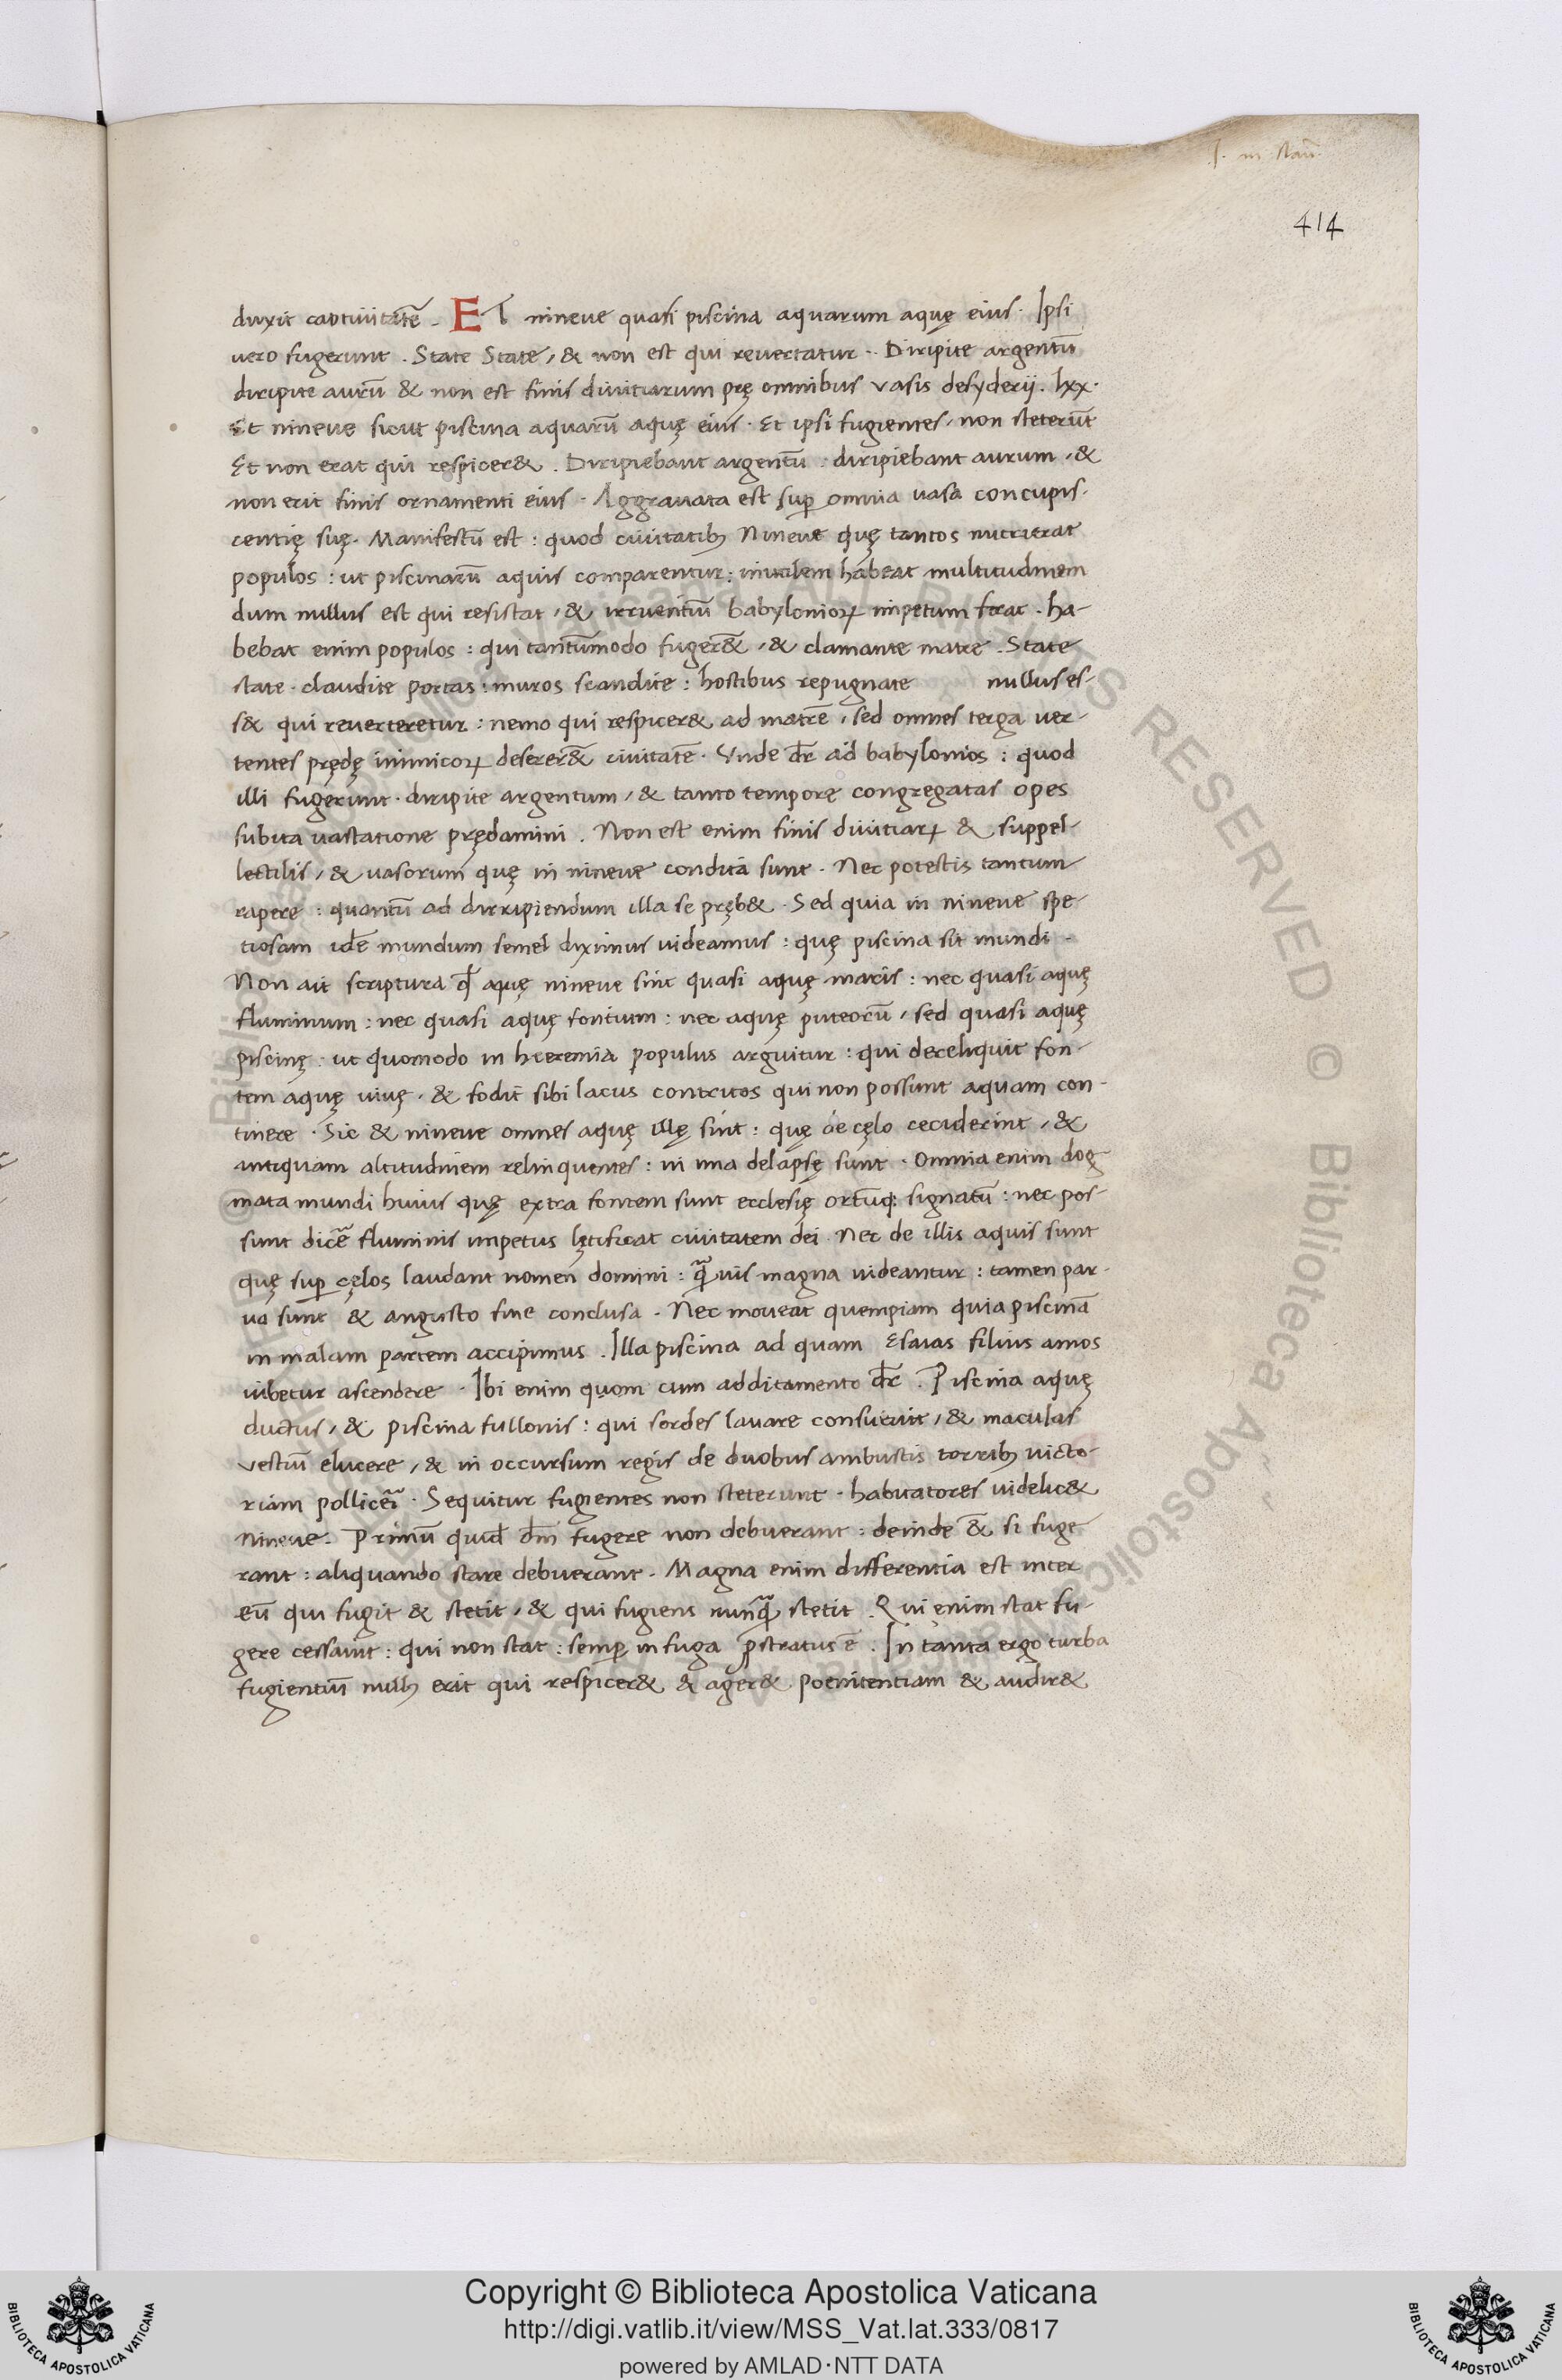 S. m stan̄
414
duxit captiuitatē. ET nineue quasi piscina aquarum aquę eius. Ipsi
uero fugerunt. State State, & non est qui reuertatur. Diripite argentū
diripite aurū & non est finis diuitiarum prę omnibus vasis desyderij. lxx.
Et nineue sicut piscina aquarū aquę eius. Et ipsi fugientes, non steterūt
Et non erat qui respicer&. Diripiebant argentū: diripiebant aurum, &
non erit finis ornamenti eius. Aggrauata est suꝑ omnia uasa concupis-
centię suę. Manifestū est: quod ciuitatibꝫ Nineue quę tantos nutrierat
populos: ut piscinarū aquis comparentur: inutilem habeat multitudinem
dum nullus est qui resistat, & irruentiū babylonioꝝ impetum ferat. ha-
bebat enim populos: qui tantūmodo fuger&̄, & clamante matre. State
state. claudite portas: muros scandite: hostibus repugnate nullus es-
s& qui reuerteretur: nemo qui respicer& ad matrē, sed omnes terga uer-
tentes prędę inimicoꝝ deserer&̄ ciuitatē. Vnde dr̄ ad babylonios: quod
illi fugerunt. diripite argentum, & tanto tempore congregatas opes
subita uastatione prędamini. Non est enim finis diuitiaꝝ & suppel-
lectilis, & uasorum quę in nineue condita sunt. Nec potestis tantum
rapere: quantū ad dirripiendum illa se pręb&. Sed quia in nineue spe-
tiosam idē mundum semel diximus uideamus: quę piscina sit mundi.
Non ait scriptura qđ aquę nineue sint quasi aquę maris: nec quasi aquę
fluminum: nec quasi aquę fontium: nec aquę puteorū, sed quasi aquę
piscinę. ut quomodo in hieremia populus arguitur: qui dereliquit fon-
tem aquę uiuę, & fodit sibi lacus contritos qui non possunt aquam con-
tinere. Sic & nineue omnes aquę illę sint: quę de cęlo ceciderint, &
antiquam altitudinem relinquentes: in ima delapsę sunt. Omnia enim dog
mata mundi huius quę extra fontem sunt ecclesię ortūqꝫ signatū: nec pos-
sunt dicē fluminis impetus lętificat ciuitatem dei. Nec de illis aquis sunt
quę suꝑ cęlos laudant nomen domini: quā uis magna uideantur: tamen par-
ua sunt & angusto fine conclusa. Nec moueat quempiam quia piscinā
in malam partem accipimus. Illa piscina ad quam Esaias filius amos
iubetur ascendere. Ibi enim quom cum additamento dr̄. Piscina aquę
ductus, & piscina fullonis: qui sordes lauare consueuit, & maculas
vestiū elucere, & in occursum regis de duobus ambustis torribꝫ victo-
riam pollicēi. Sequitur fugientes non steterunt. habitatores uidelic&
Nineue. Primū quid dm̄ fugere non debuerant: deinde &̄ si fuge
rant: aliquando stare debuerant. Magna enim differentia est inter
eū qui fugit & stetit, & qui fugiens nunquā stetit. Qui enim stat fu-
gere cessauit: qui non stat: semꝑ in fuga ꝓstratus ē. In tanta ergo turba
fugientiū nullꝫ erit qui respicer& & ager& poenitentiam & audir&
Copyright © Biblioteca Apostolica Vaticana
http://digi.vatlib.it/view/MSS_Vat.lat.333/0817
powered by AMLAD·NTT DATA